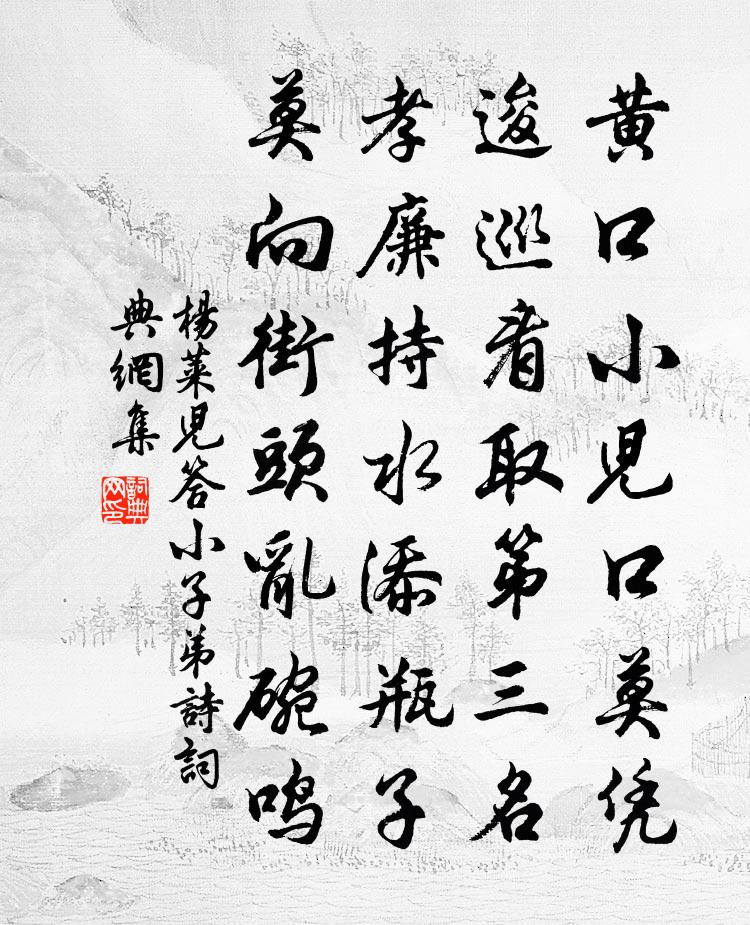 黄口小兒口莫凭
逡巡看取第三名
孝廉持水添瓶子
莫向街頭亂碗鸣
楊萊兒答小子弟詩詞
典網集
詞典网印